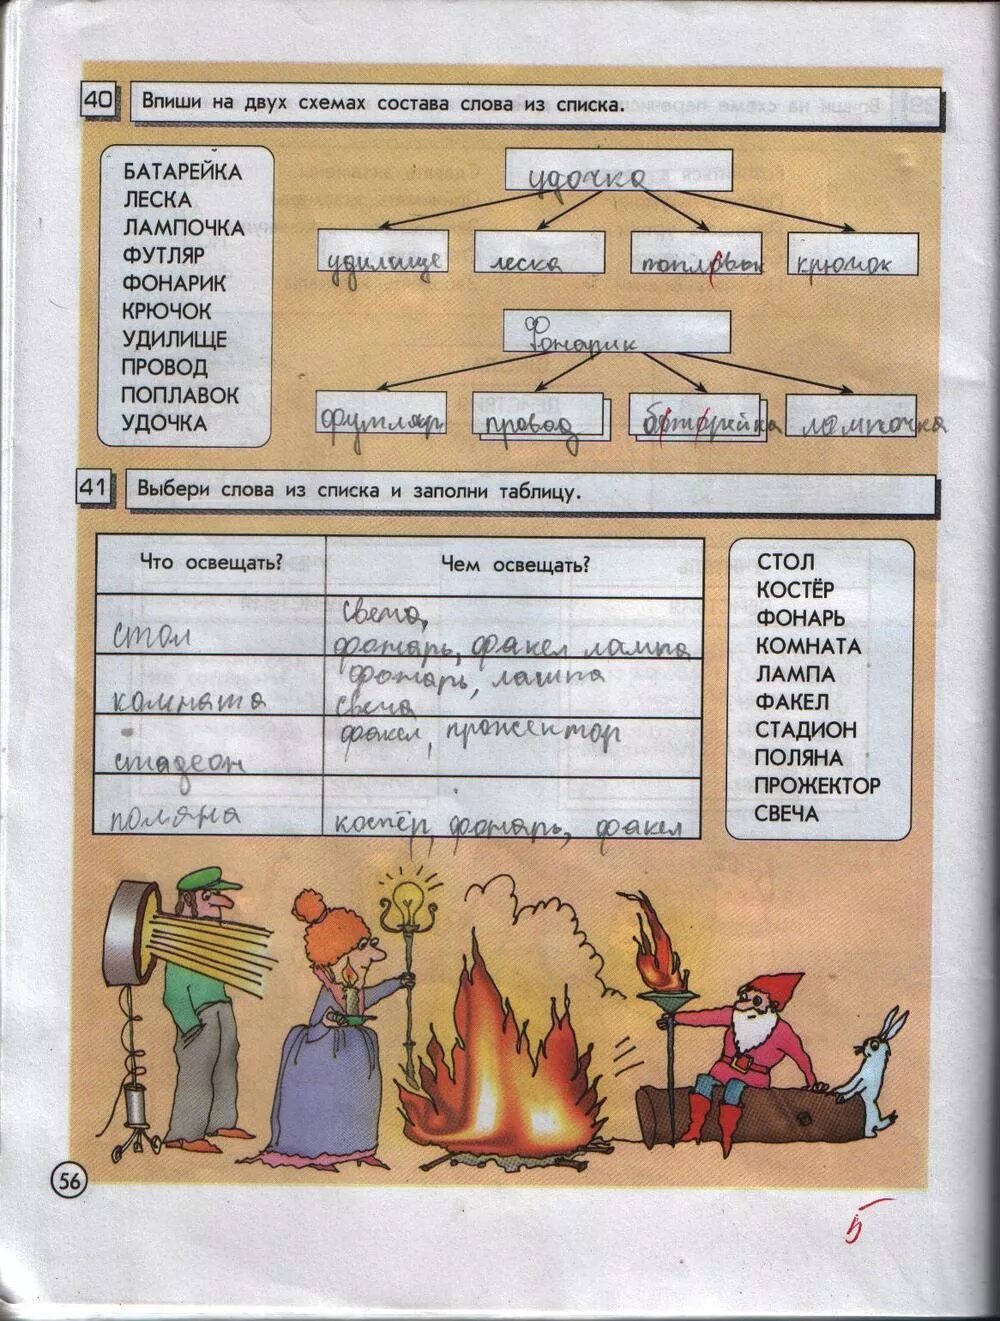 40 Впиши на двух схемах состава слова из списка.
БАТАРЕЙКА
ЛЕСКА
ЛАМПОЧКА
ФУТЛЯР
ФОНАРИК
КРЮЧОК
УДИЛИЩЕ
ПРОВОД
ПОПЛАВОК
УДОЧКА
удочка
удилище леска поплавок крючок
Фонарик
футляр провод батарейка лампочка
41 Выбери слова из списка и заполни таблицу.
Что освещать? Чем освещать?
свеча,
стол фонарь, факел лампа
фонарь, лампа
комната свеча
факел, прожектор
стадеон
поляна костёр, фонарь, факел
СТОЛ
КОСТЁР
ФОНАРЬ
КОМНАТА
ЛАМПА
ФАКЕЛ
СТАДИОН
ПОЛЯНА
ПРОЖЕКТОР
СВЕЧА
56
5